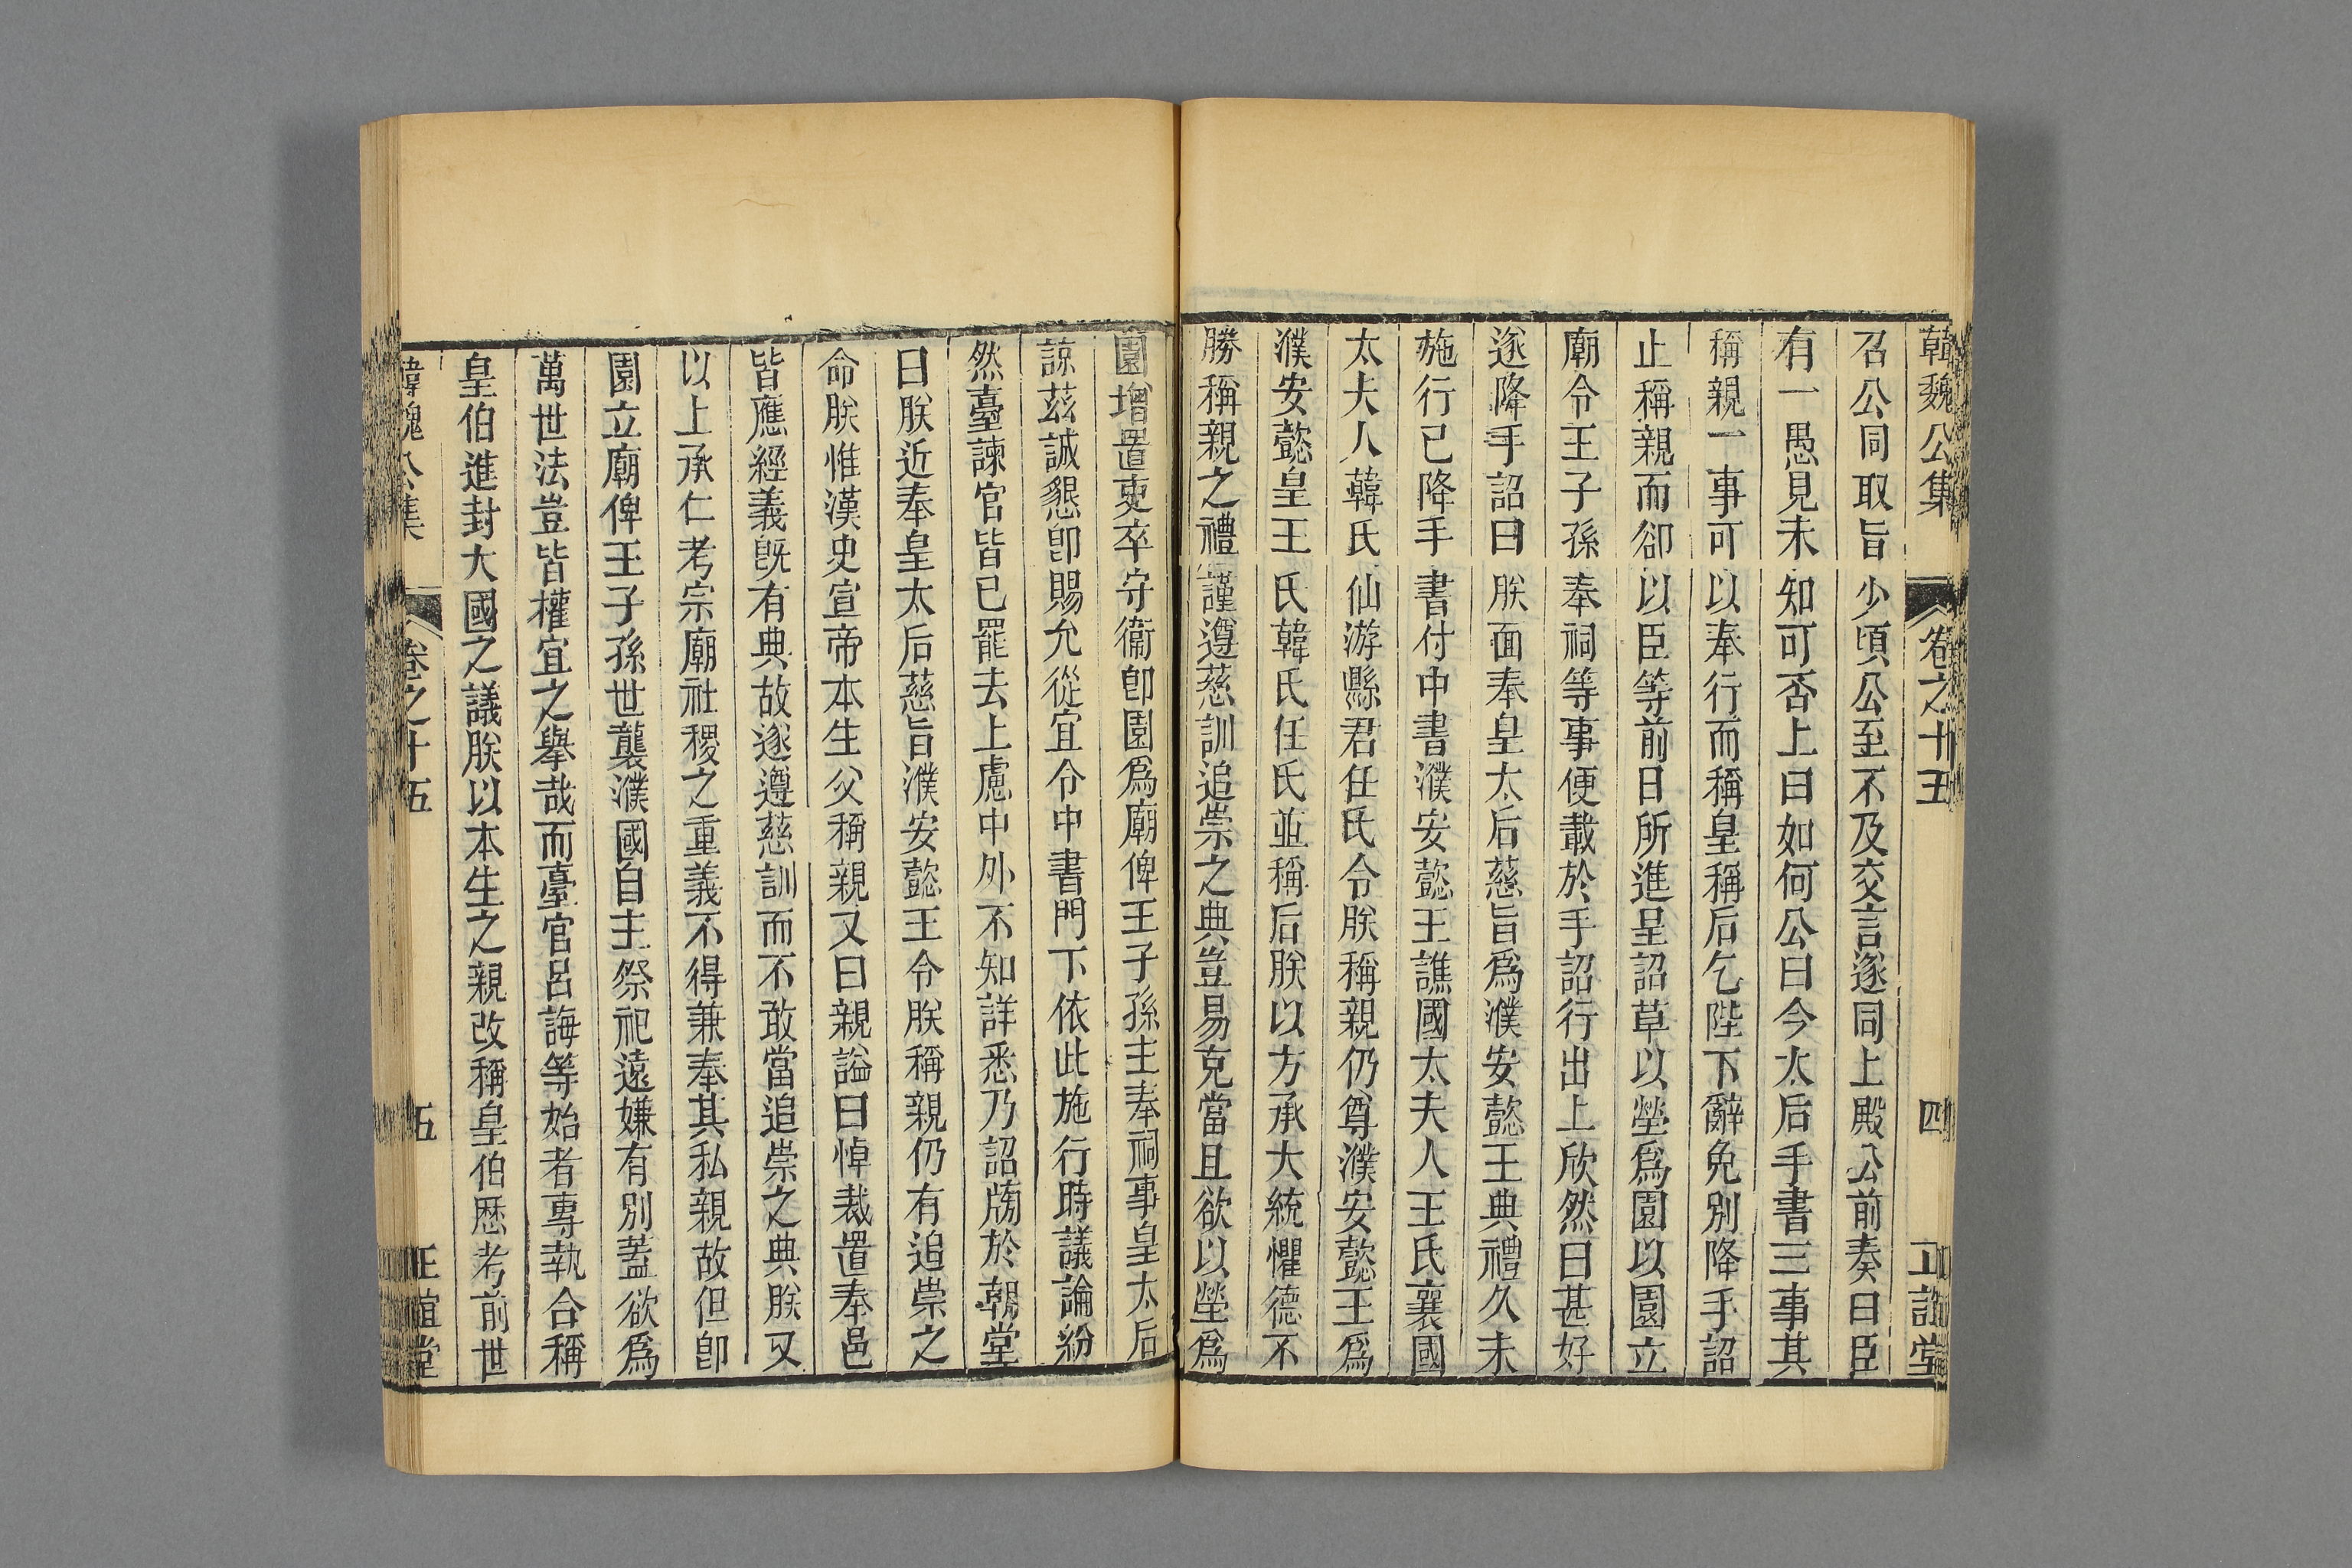 韓魏公集 卷之十五 四 正誼堂
召公同取旨少頃公至不及交言遂同上殿公前奏曰臣
有一愚見未知可否上曰如何公曰今太后手書三事其
稱親一事可以奉行而稱皇稱后乞陛下辭免別降手詔
止稱親而卻以臣等前日所進呈詔草以塋爲園以園立
廟令王子孫奉祠等事便載於手詔行出上欣然曰甚好
遂降手詔曰朕面奉皇太后慈旨爲濮安懿王典禮久未
施行已降手書付中書濮安懿王譙國太夫人王氏襄國
太夫人韓氏仙游縣君任氏令朕稱親仍尊濮安懿王爲
濮安懿皇王氏韓氏任氏並稱后朕以方承大統懼德不
勝稱親之禮謹遵慈訓追崇之典豈易克當且欲以塋爲
園增置吏卒守衞卽園爲廟俾王子孫主奉祠事皇太后
諒茲誠懇卽賜允從宜令中書門下依此施行時議論紛
然臺諫官皆已罷去上慮中外不知詳悉乃詔牓於朝堂
曰朕近奉皇太后慈旨濮安懿王令朕稱親仍有追崇之
命朕惟漢史宣帝本生父稱親又曰親謚曰悼裁置奉邑
皆應經義旣有典故遂遵慈訓而不敢當追崇之典朕又
以上承仁考宗廟社稷之重義不得兼奉其私親故但卽
園立廟俾王子孫世襲濮國自主祭祀遠嫌有別蓋欲爲
萬世法豈皆權宜之舉哉而臺官呂誨等始者專執合稱
皇伯進封大國之議朕以本生之親改稱皇伯歷考前世
韓魏公集 卷之十五 五 正誼堂